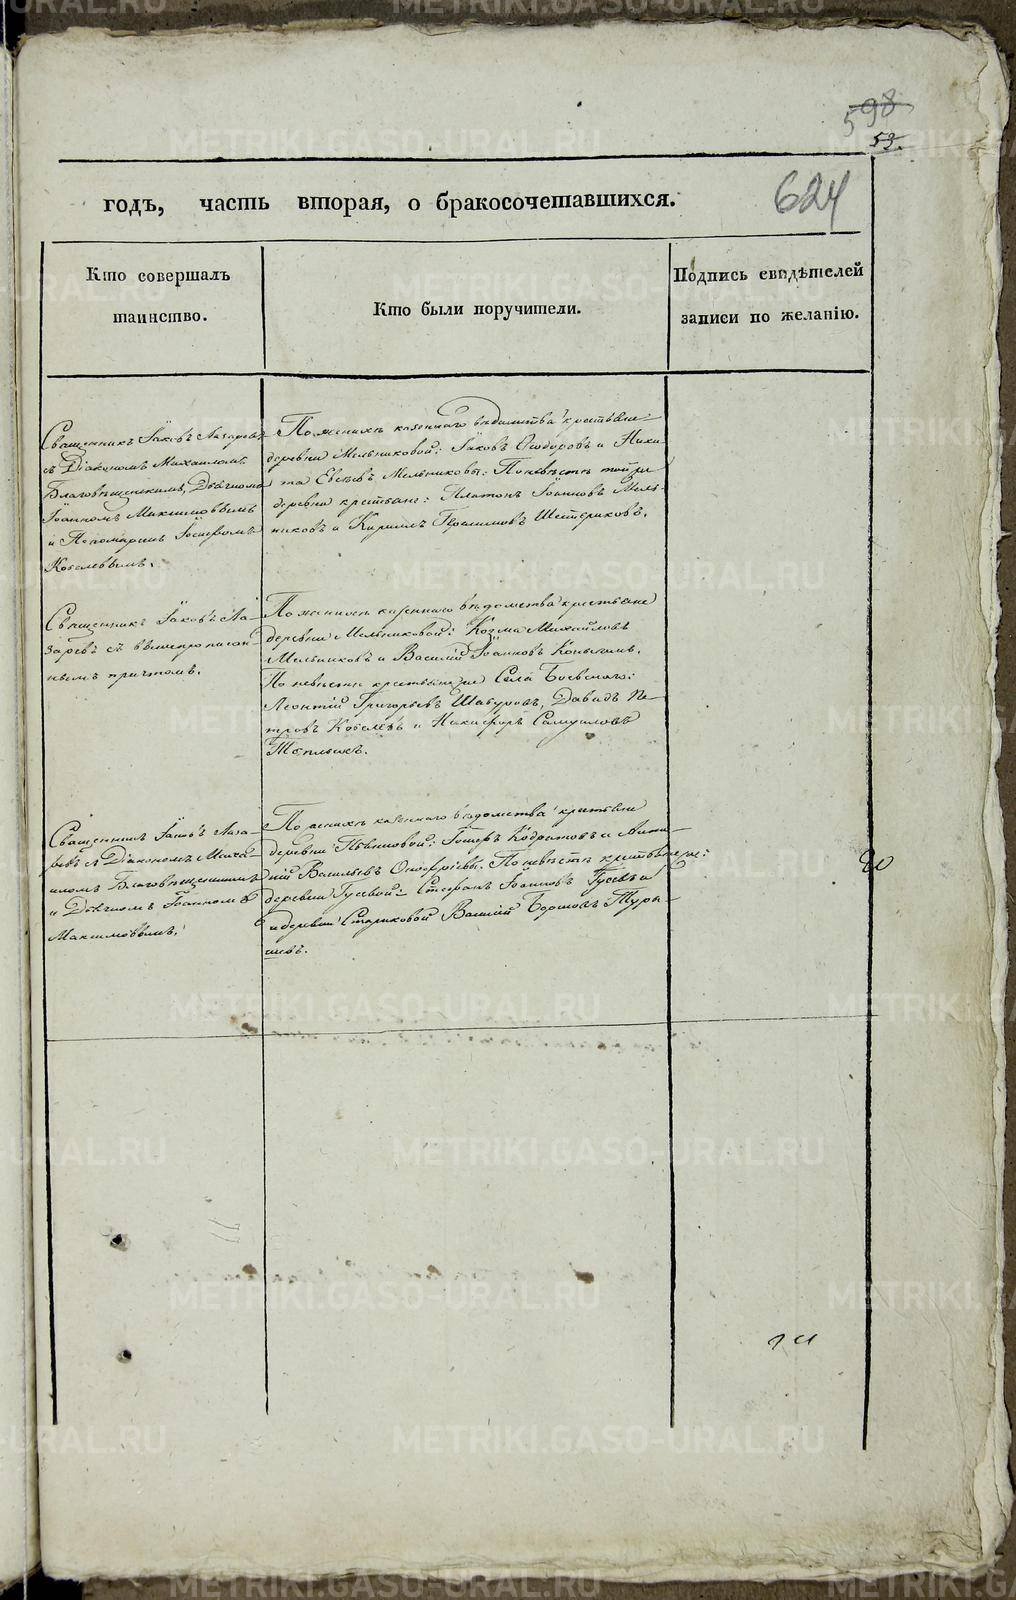 598
53.
624
годъ, часть вторая, о бракосочетавшихся.
Кто совершалъ
таинство.
Кто были поручители.
Подпись свидѣтелей
записи по желанію.
Священникъ Іаковъ Лазаревъ
съ Діакономъ Михаиломъ
Благовѣщенскимъ, Дьячкомъ
Іоанномъ Максимовымъ
и Пономаремъ
Ковалевымъ.
По женихѣ казеннаго вѣдомства крестьяне
деревни Мельниковой: Іаковъ Ѳеодоровъ и Ники-
та Евсѣевъ Мельниковы: По невѣстѣ той же
деревни крестьяне: Платонъ Іоанновъ Мель-
никовъ и Кириллъ Шестериковъ.
Священникъ Іаковъ Ла-
заревъ съ вышепрописан-
нымъ причтомъ.
По женихѣ казеннаго вѣдомства крестьяне
деревни Мельниковой: Козма Михайловъ
Мельниковъ и Василій Іоанновъ
По невѣстѣ крестьяне же Села Боевскаго:
Леонтій Григорьевъ Шабуровъ, Давидъ Пе-
тровъ Ковалевъ и Никифоръ Самуиловъ
Тепляковъ.
Священникъ Іаковъ Лаза-
ревъ съ Діакономъ Миха-
иломъ Благовѣщенскимъ
и Дьячкомъ Іоанномъ
Максимовымъ.
По женихѣ казеннаго вѣдомства крестьяне
деревни и
Васильевъ Онофріевы. По невѣстѣ крестьяне же:
деревни Гусевой: Стефанъ Іоанновъ Гусевъ
и деревни Стариковой Василій
METRIKI.GASO-URAL.RU